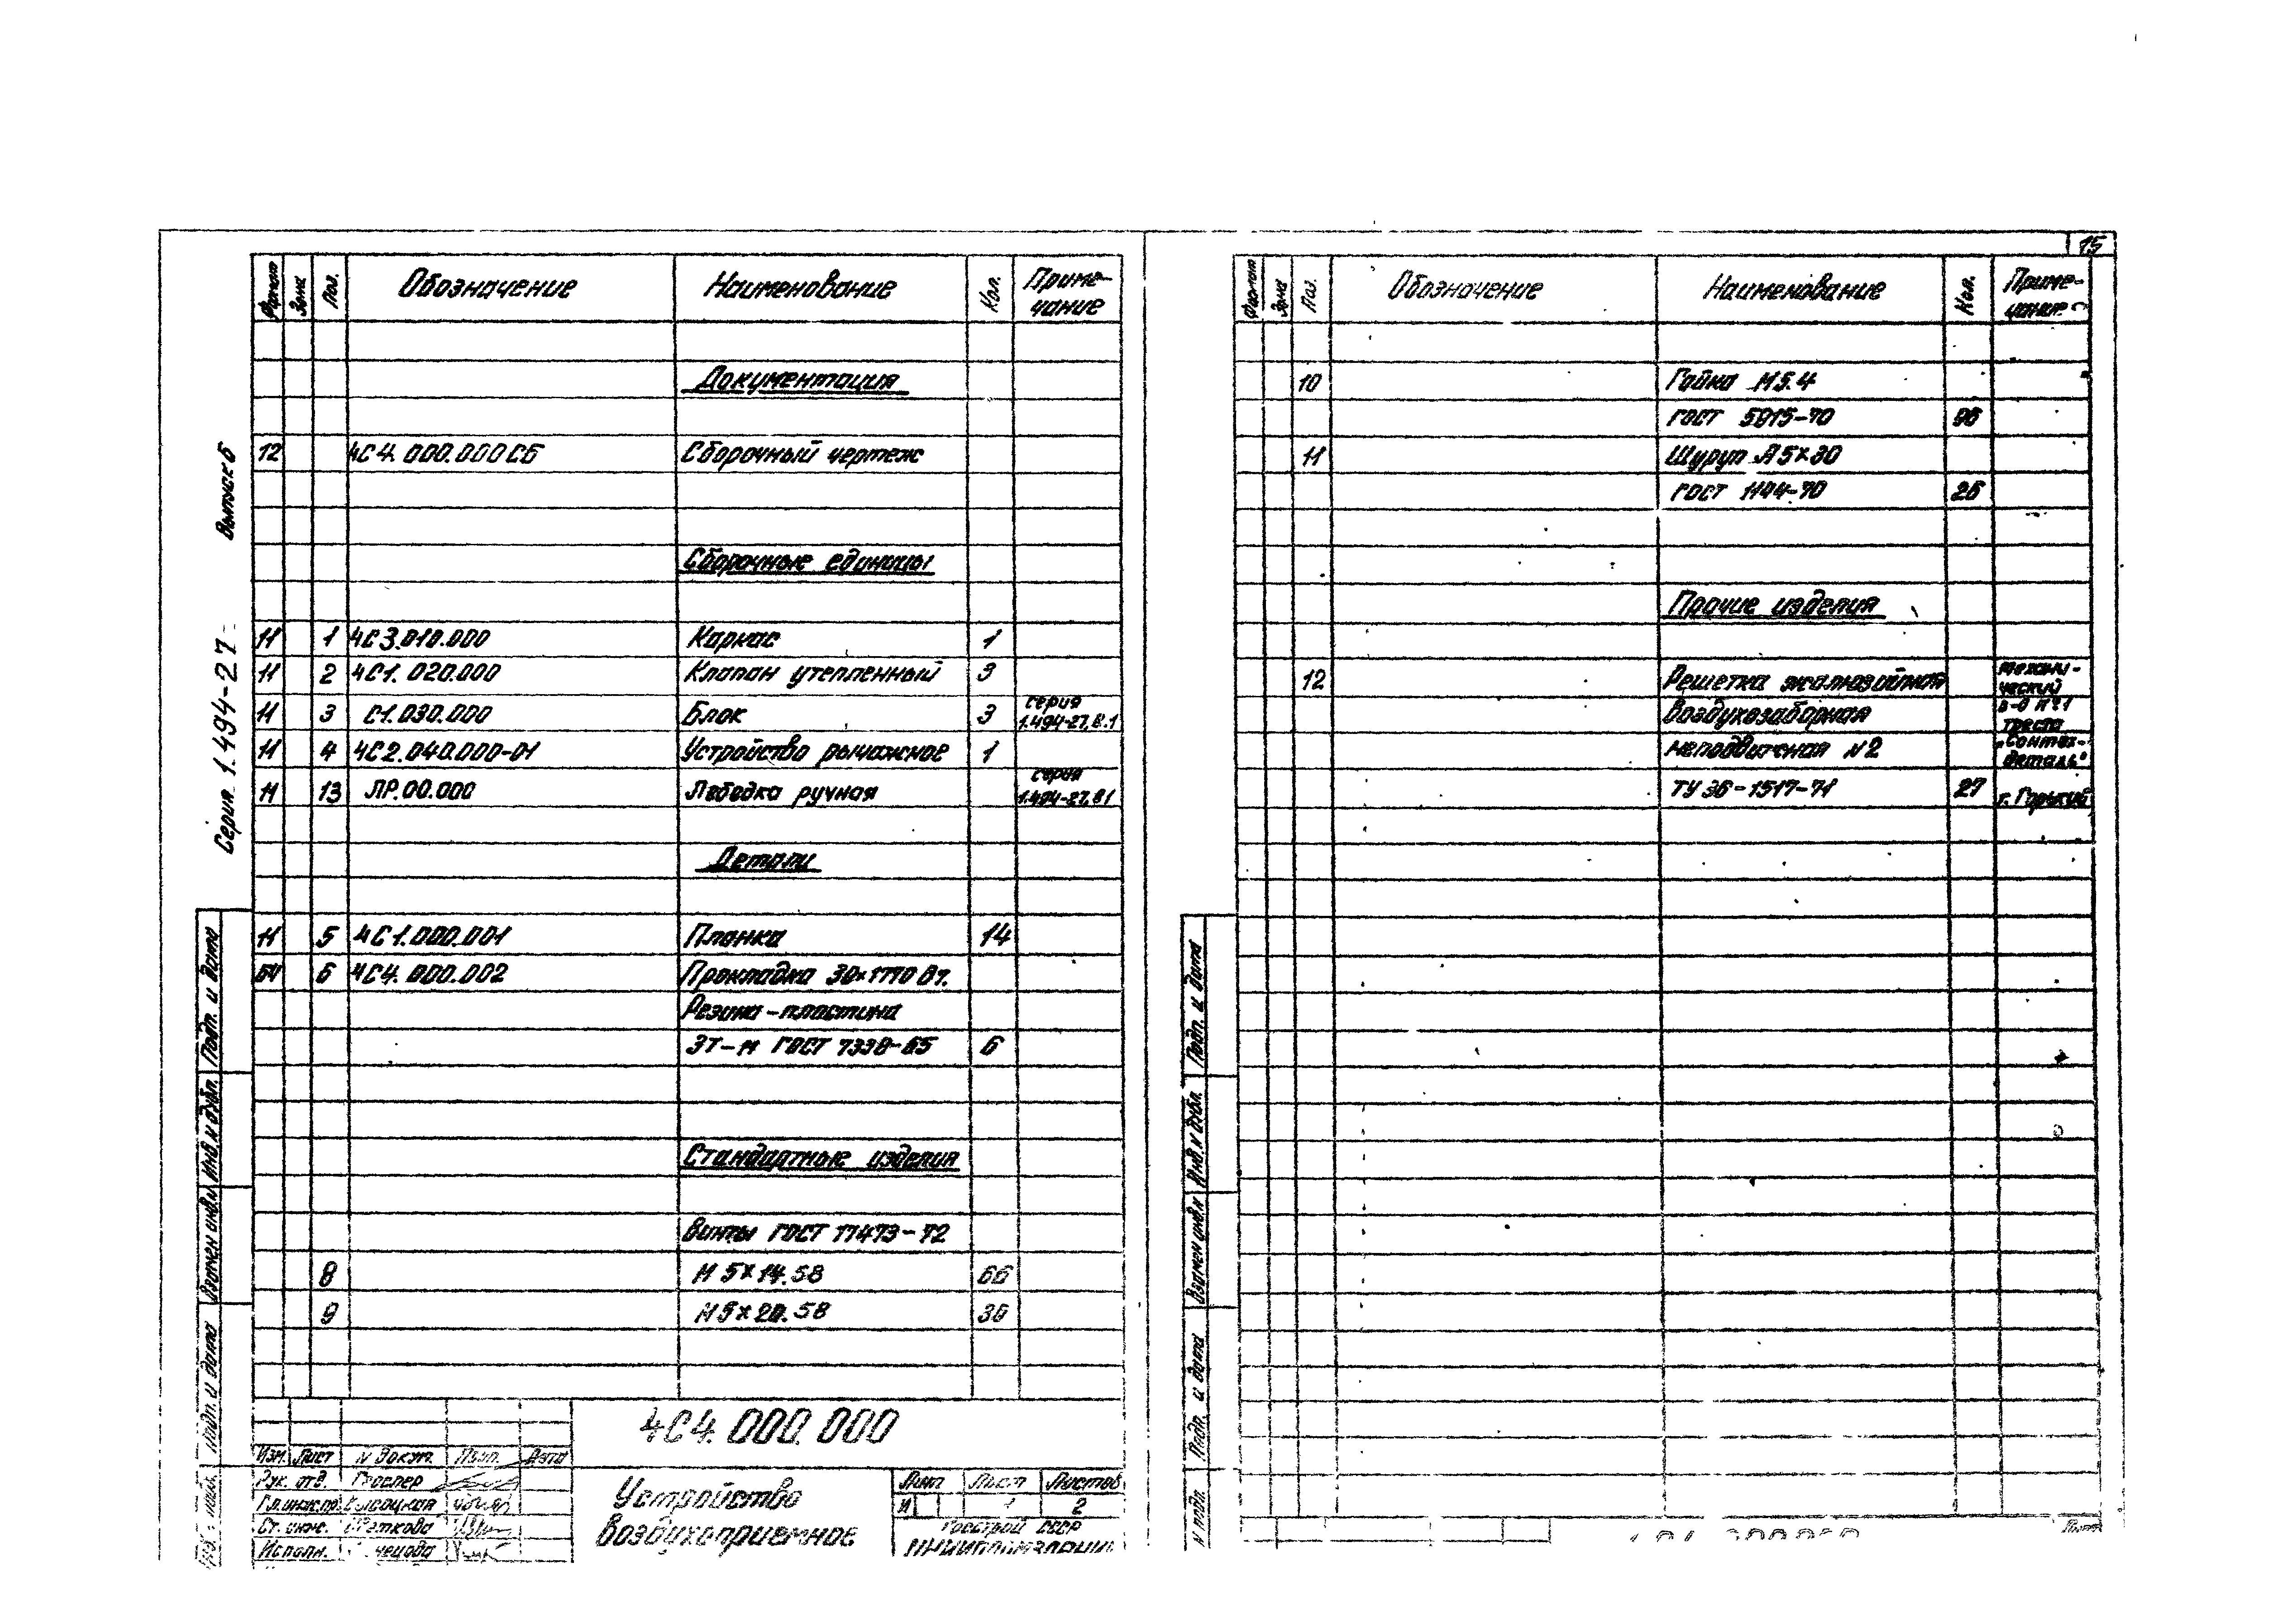 15
Серия 1.494-27 Выпуск 6
Формат Зона Поз. Обозначение Наименование Кол. Приме-
чание
Документация
12 4С4.000.000СБ Сборочный чертеж
Сборочные единицы
11 1 4С3.010.000 Каркас 1
11 2 4С1.020.000 Клапан утепленный 3
11 3 С1.030.000 Блок 3 серия
1.494-27, в.1
11 4 4С2.040.000-01 Устройство рычажное 1
11 13 ЛР.00.000 Лебедка ручная серия
1.494-27, в1
Детали
11 5 4С1.000.001 Планка 14
БЧ 6 4С4.000.002 Прокладка
Резина-пластина
ГОСТ 7338-65 6
Стандартные изделия
Винты ГОСТ 17473-72
8 М5×14.58 66
9 М5×20.58 30
4С4.000.000
Изм. Лист N докум. Подп. Дата
Рук. отд.
Гл.инж.пр. Высоцкая
Ст. инж.
Исполн.
Устройство
воздухоприемное
Лит Лист Листов
И 2
Госстрой СССР
ЦНИИПРОМЗДАНИЙ
Подп. и дата
Инв. N дубл.
Взамен инв. N
Подп. и дата
Формат Зона Поз. Обозначение Наименование Кол. Приме-
чание
10 Гайка М5.4
ГОСТ 5915-70 96
11 Шуруп А5×30
ГОСТ 1144-70 26
Прочие изделия
12 Решетка жалюзийная механи-
ческий
воздухозаборная з-д №1
треста
неподвижная N2 „Сантех-
деталь"
ТУ 36-1517-71 27 г. Горький
Подп. и дата
Инв. N дубл.
Взамен инв. N
Подп. и дата
N подл.
Лист